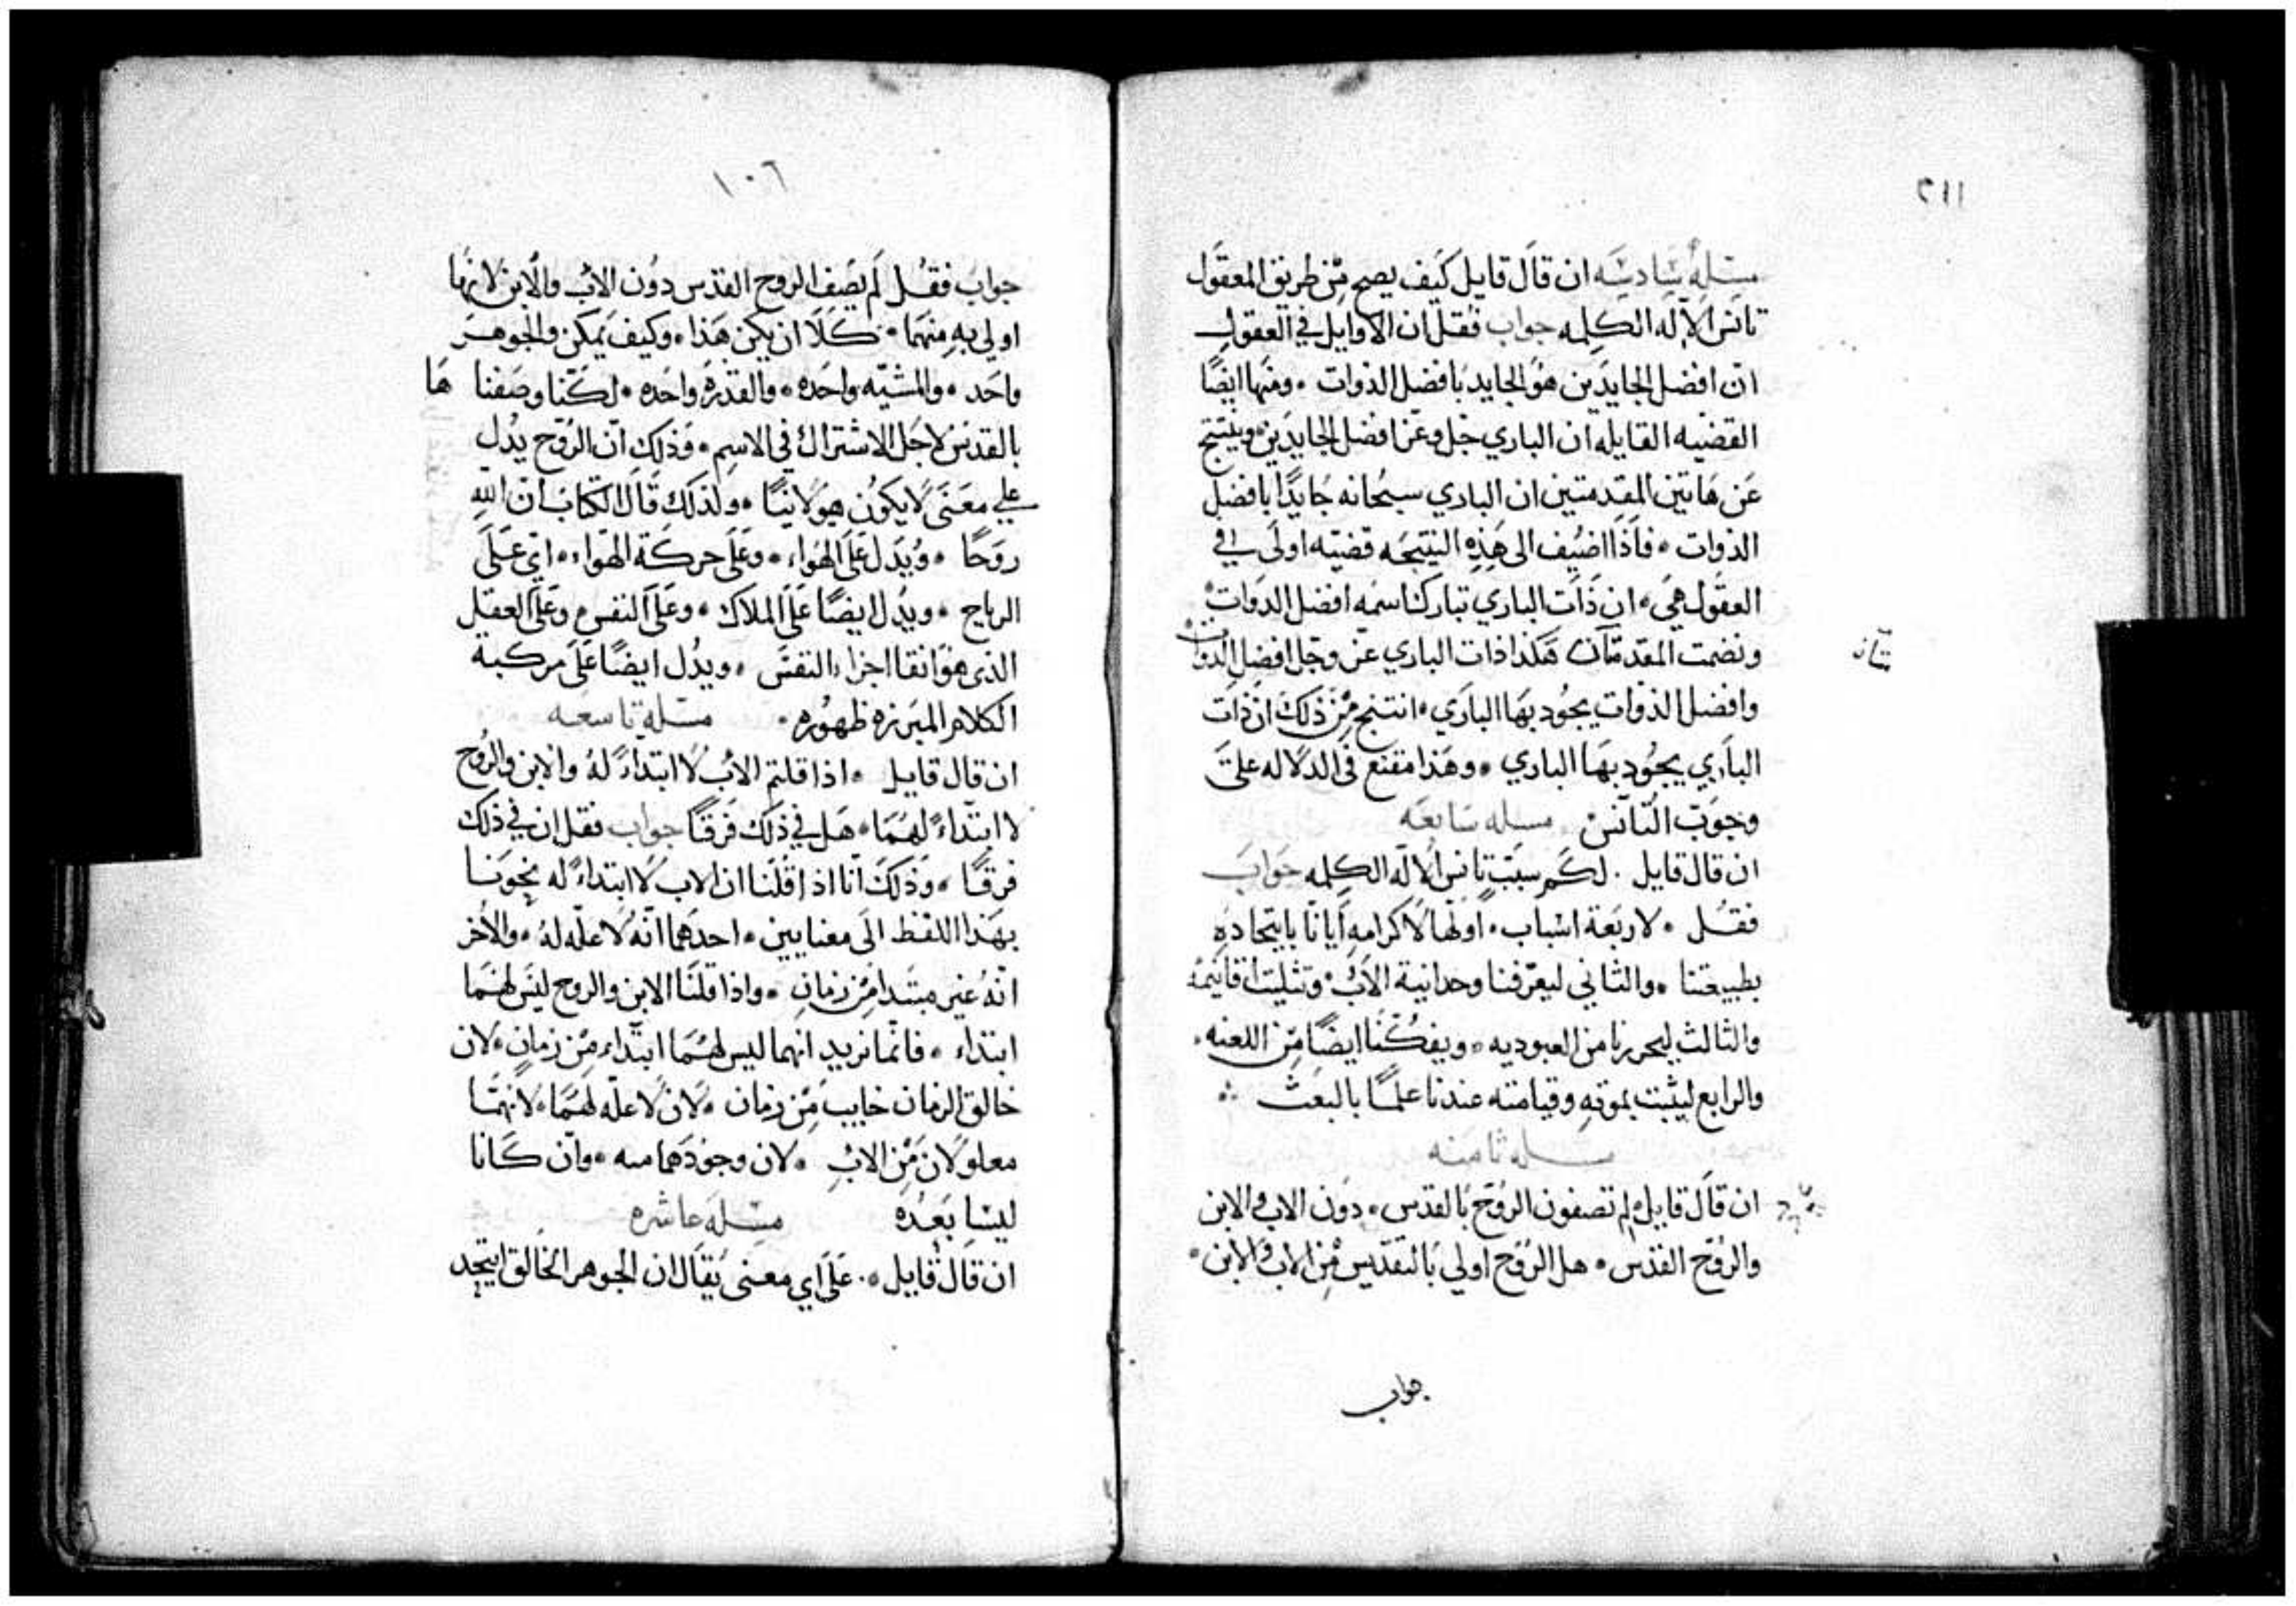 ٢١١
مسلة سادسه ان قال قايل كيف يصح من طريق المعقول
تانس الاله الكلمه جواب فقل ان الاوايل في العقول
ان افضل الجايدين هو الجايد بافضل الذوات ٠ ومنها ايضًا
القضيه القايله ان الباري جل وعز افضل الجايدين وينتج
عن هاتين المقدمتين ان الباري سبحانه جايدًا بافضل
الذوات ٠ فاذا اضيف الى هذه النتيجه قضيه اولى في
العقول هي ٠ ان ذات الباري تبارك اسمه افضل الذوات
ونضمت المقدمتان هكذا ذات الباري عز وجل افضل الذوات
وافضل الذوات يجود بها الباري ٠ انتنج من ذلك ان ذات
الباري يجود بها الباري ٠ وهذا مقنع في الدلاله على
وجوب التانس مسله سابعه
ان قال قايل ٠ لكم سبب تانس الاله الكلمه جواب
فقل ٠ لاربعة اسباب ٠ اولها لاكرامه ايانا باتحاده
بطبيعتنا ٠ والثاني ليعرفنا وحدانية الاب وتثليث اقانيمه
والثالث ليحررنا من العبوديه ٠ ويفكنا ايضًا من اللعنه ٠
والرابع ليثبت بموته وقيامته عندنا علمًا بالبعث
مسله ثامنه
ان قال قايل لم تصفون الروح بالقدس ٠ دون الاب والابن
والروح القدس ٠ هل الروح اولى بالتقديس من الاب والابن ٠
جواب
١٠٦
جواب فقل لم يصف الروح القدس دون الاب والابن لانها
اولى به منهما ٠ كلا ان يكن هذا ٠ وكيف يمكن والجوهر
واحد ٠ والمشيه واحده ٠ والقدرة واحده ٠ لكننا وصفنا ها
بالقدس لاجل الاشتراك في الاسم ٠ وذلك ان الروح يدل
علي معنى لا يكون هيولانيًا ٠ ولذلك قال الكتاب ان الله
روحًا ٠ ويدل على الهواء ٠ وعلى حركة الهواء ٠ اي على
الرياح ٠ ويدل ايضًا على الملاك ٠ وعلى النفس وعلى العقل
الذي هو انقا اجزاء النفس ٠ ويدل ايضًا على مركبة
الكلام المبرزه ظهوره ٠ مسلة تاسعه
ان قال قايل ٠ اذا قلتم الاب لا ابتداءً له والابن والروح
لا ابتداءً لهما ٠ هل في ذلك فرقًا جواب فقل ان في ذلك
فرقًا ٠ وذلك انا اذا قلنا ان الاب لا ابتداءً له نحونا
بهذا اللفظ الى معنايين ٠ احدهما انه لا علّه له ٠ والاخر
انه غير مبتدا من زمان ٠ واذا قلنا الابن والروح ليس لهما
ابتداء ٠ فانما نريد انهما ليس لهما ابتداء من زمان ٠ لان
خالق الزمان خايب من زمان ٠ لان لا علّه لهما ٠ لانهما
معلولان من الاب ٠ لان وجودهما منه ٠ وان كانا
ليسا بعده مسلة عاشره
ان قال قايل ٠ على اي معنى يقال ان الجوهر الخالق اتحد